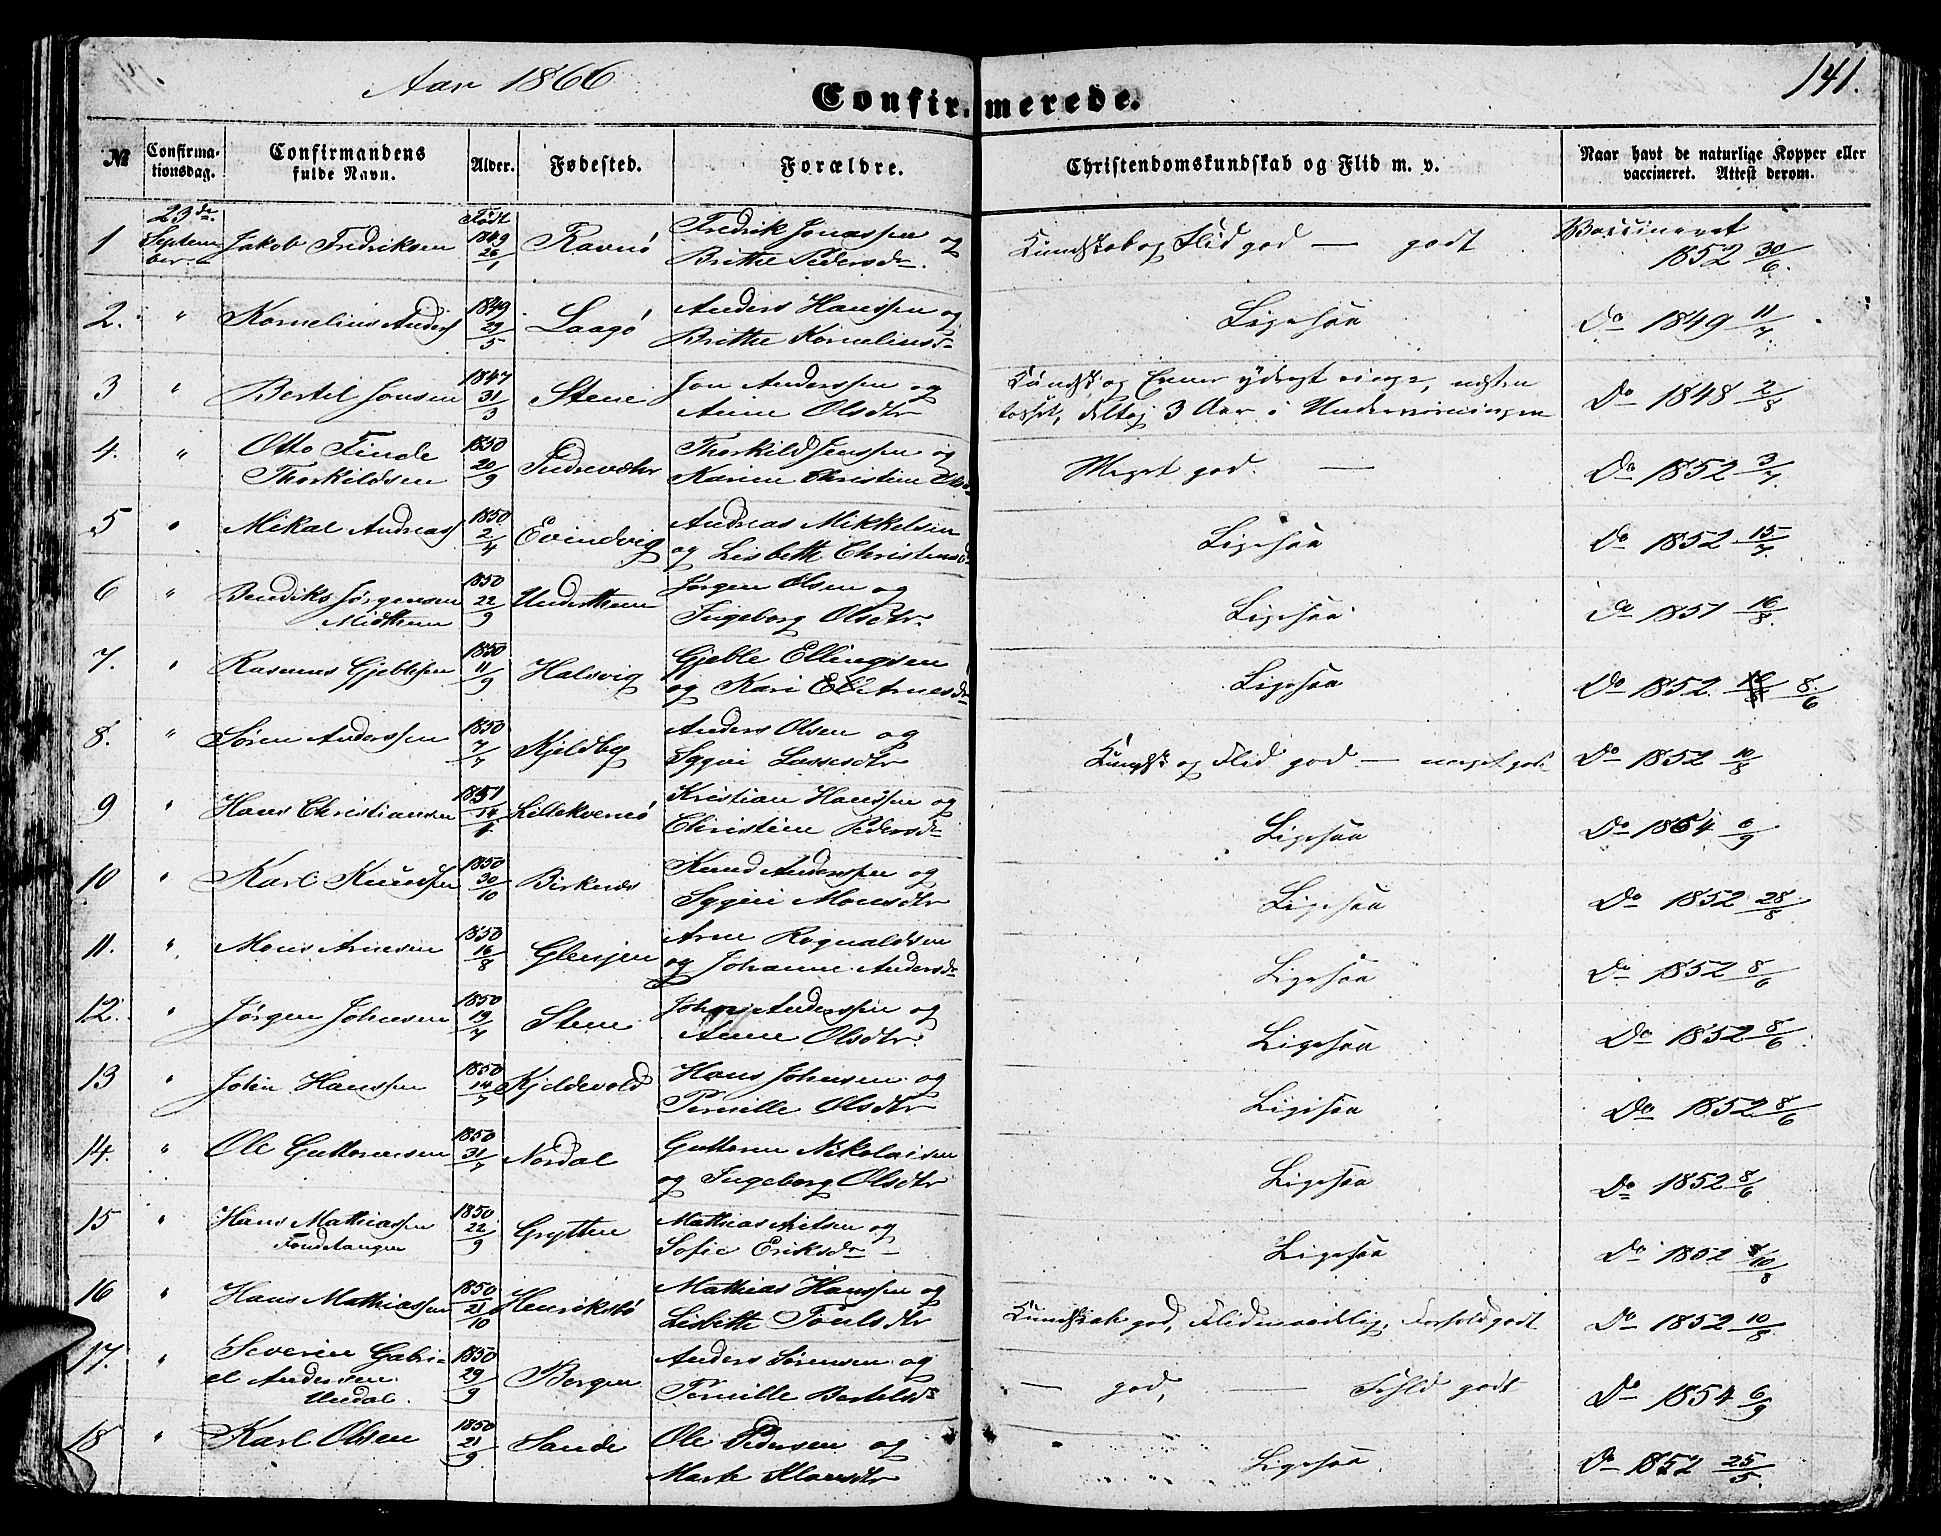 Aar 1866
Confirmerede.
141.
№ Confirmationsdag. Confirmandens fulde Navn. Alder. Fødested. Forældre. Christendomskundskab og Flid m. v. Naar havt de naturlige Kopper eller vaccineret. Attest derom.
1 23de September Jakob Fredriksen Født 1849 26/1 Ravnö Fredrik Jonassen og Brithe Pedersdr. Kundskab og Flid god — godt Vaccineret 1852 30/6.
2. " Kornelius Anders 1849 29/5 Laagö Anders Hanssen og Brithe Kornelinsdr Ligesaa Do 1849 11/7.
3 " Bertil Jonsen 1847 31/3 Stene Jon Anderssen og Anne Olsdtr Kundsk og Evner yderst ringe, næsten tosset, deltog 3 Aar i Undervisningen Do 1848 2/8
4. " Otto Finde Thorkildsen 1850 20/9 Indrevær Thorkild Jenssen og Karine Christine Meget god. — Do 1852 3/7.
5 " Mikal Andreas 1850 2/4 Evindvig Andreas Mikkelsen og Lisbeth Christensd Ligesaa Do 1852 15/7.
6 " Bendiks Jørgensen Midttun 1850 22/9 Underthun Jørgen Olsen og Ingeborg Olsdtr. Ligesaa Do 1851 16/8.
7. " Rasmus Gjeblesen 1850 11/9 Halsvig Gjeble Ellingsen og Kari Arnesdr Ligesaa Do 1852 8/6
8. " Sören Anderssen 1850 7/7 Kjeldby Anders Olsen og Sygni Lassesdtr Kundsk og Flid god — meget godt Do 1852 10/8
9 " Hans Christiansen 1851 14/1 Lillekvernö Kristian Hanssen og Christine Pedersdr Ligesaa Do 1854 6/9
10 " Karl Knudssen 1850 30/10 Birknes Knud Anderssen og Sygni Monsdtr Ligesaa Do 1852 28/8
11. " Mons Arnesen 1850 16/8 Glenjen Arne Rognaldsen og Johanne Andersdr Ligesaa Do 1852 8/6
12. " Jørgen Johnsen 1850 19/7 Stene John Anderssen og Anne Olsdtr. Ligesaa Do 1852 8/6
13 " John Hanssen 1850 14/7 Kjeldevold Hans Johnsen og Pernille Olsdtr Ligesaa Do 1852 8/6
14. " Ole Guttormsen 1850 31/7 Nordal Guttorm Nikolaisen og Ingeborg Olsdtr Ligesaa Do 1852 8/6
15 " Hans Mathiassen Fondetangen 1850 22/9 Grytten Mathias Nilsen og Sofie Eriksdr Ligesaa Do 1852 10/8
16 " Hans Mathiassen 1850 21/10 Henriksbö Mathias Hanssen og Lisbeth Poulsdtr Kundskab god, Flid maadelig, Forhold godt Do 1852 10/8
17. " Severin Gabriel Andersen Undal. 1850 29/9 Bergen Anders Sørensen og Pernille Berteldr — god, — Fohld godt Do 1854 6/9
18 " Karl Olsen 1850 21/9 Sande Ole Pedersen og Marte Klausdtr Ligesaa Do 1852 25/5.